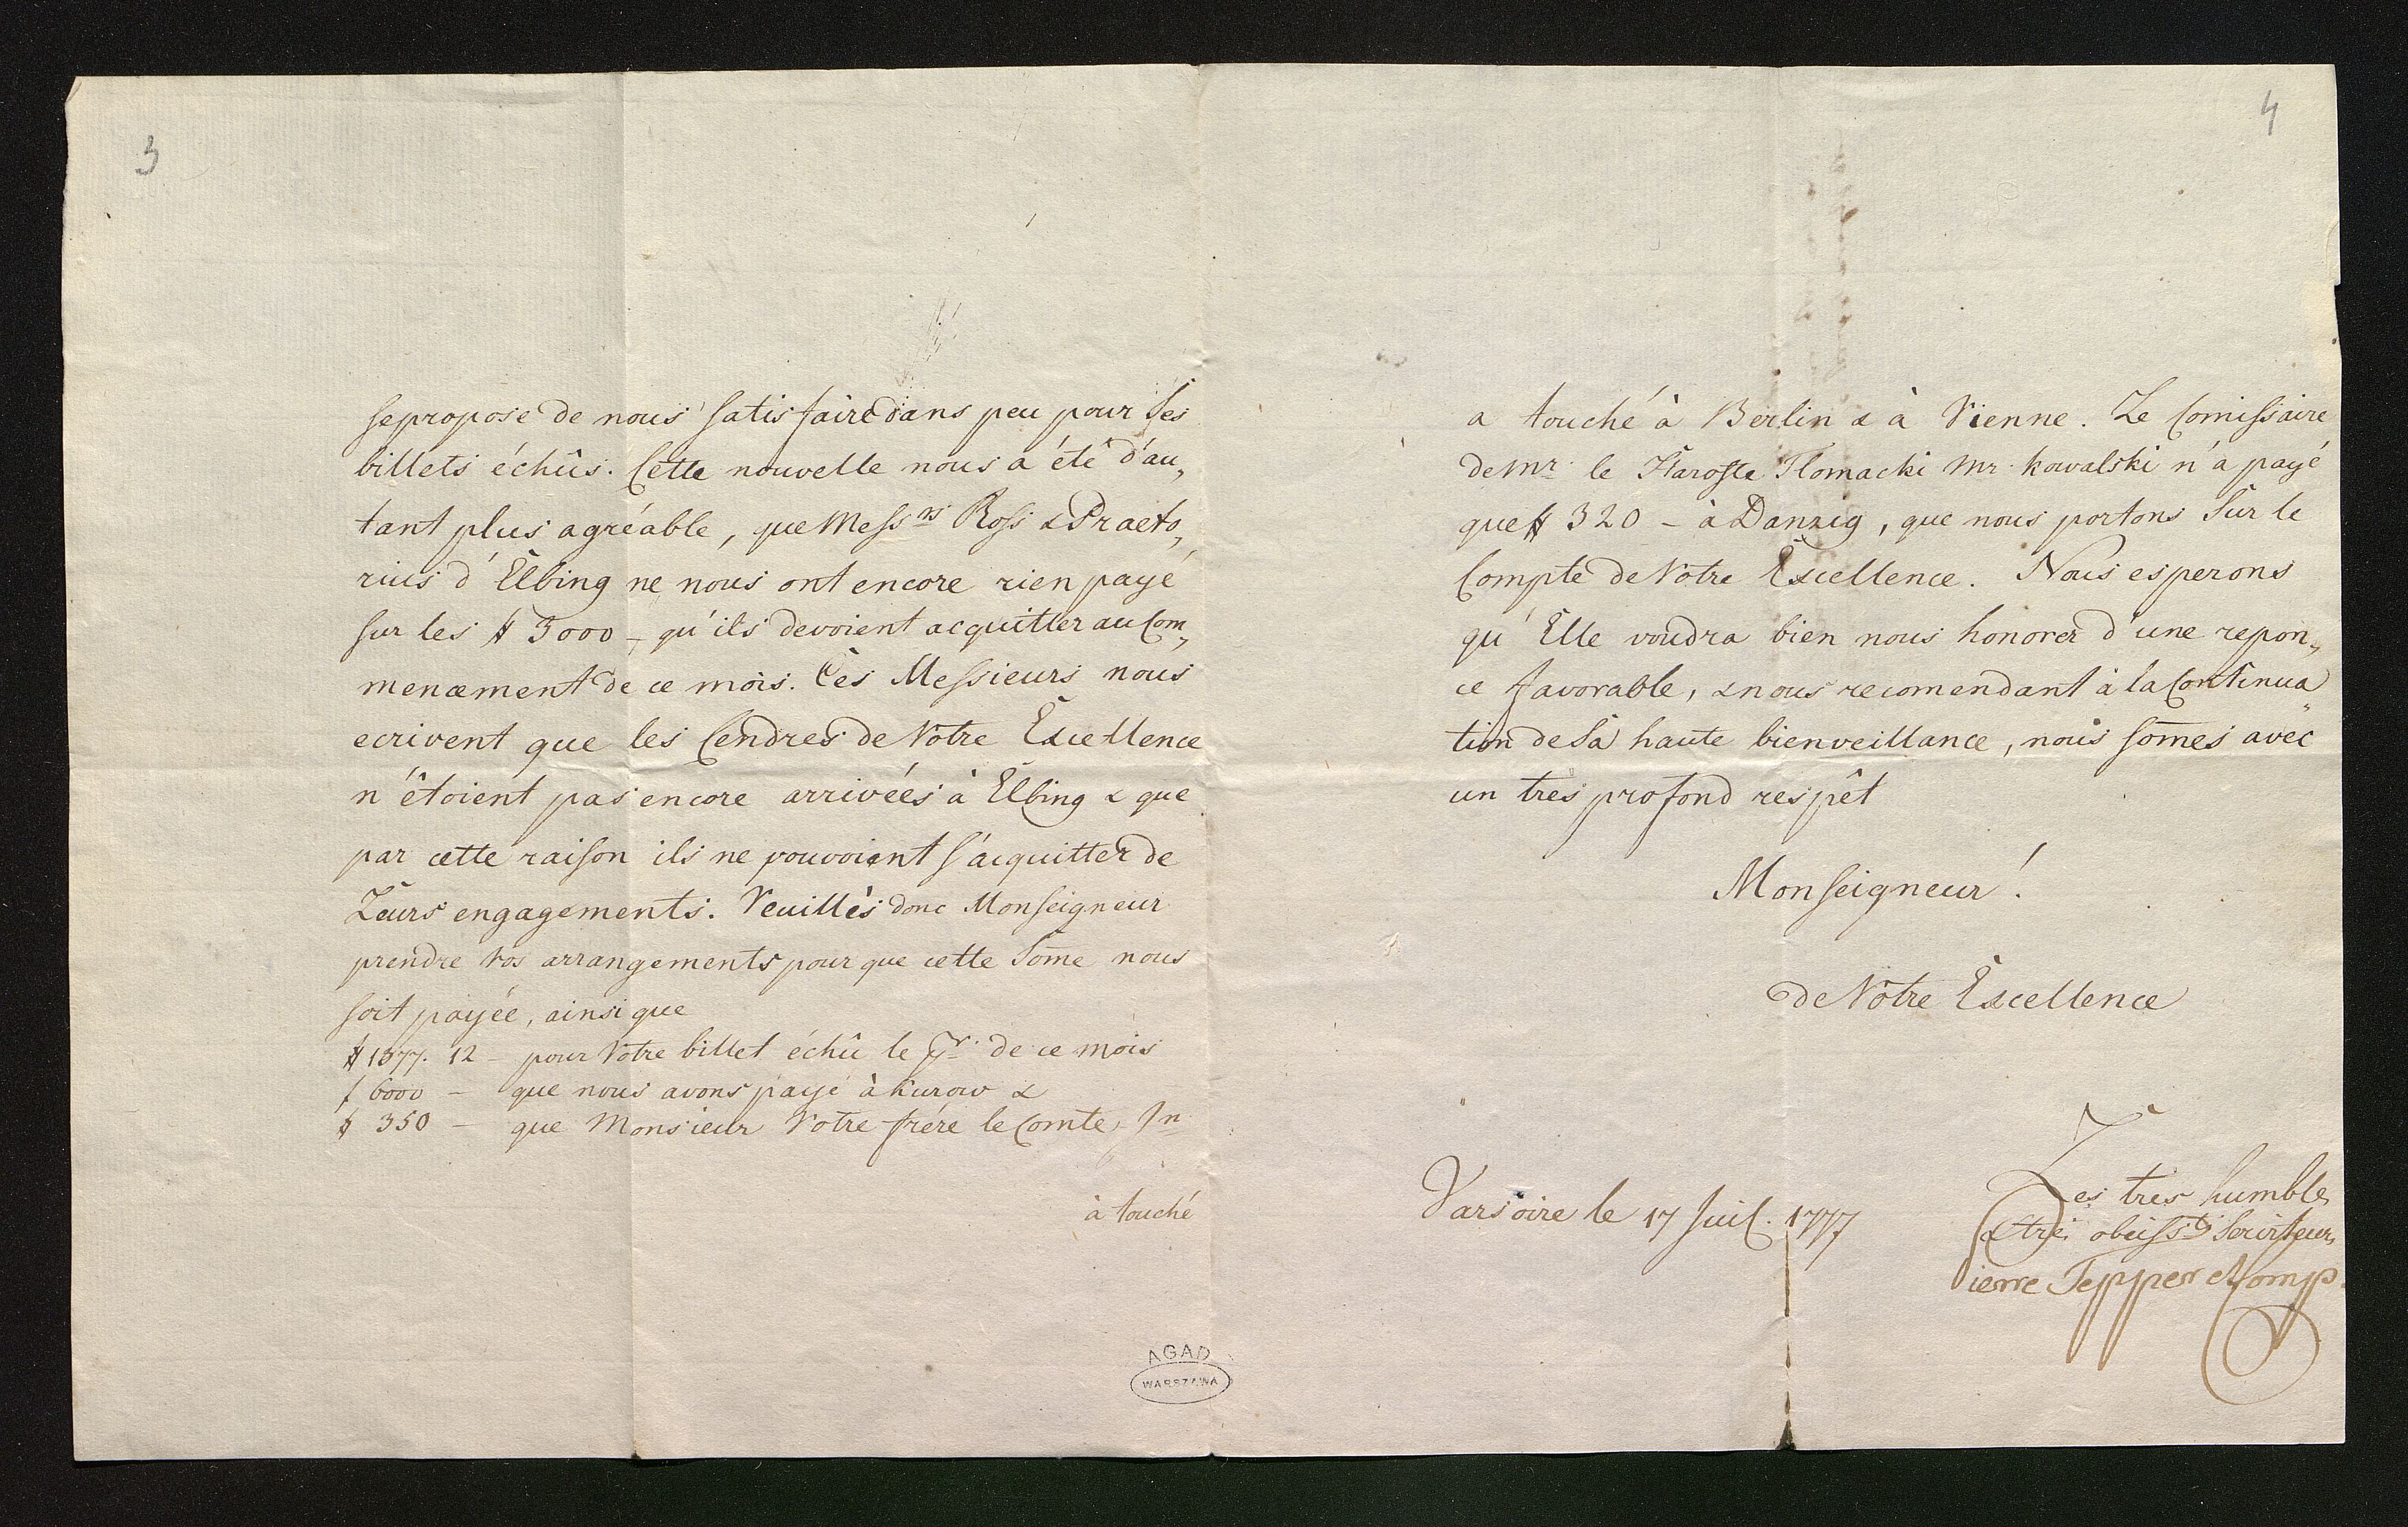 3
se propose de nous satisfaire dans peu pour Ses
billets échûs. Cette nouvelle nous a été d'au„
tant plus agréable, que Mess.rs Ross & Praeto„
rius d'Elbing ne nous ont encore rien payé
sur les # 3000 – qu'ils devoient acquitter au Com„
mencement de ce mois. Ces Messieurs nous
ecrivent que les Cendres de Votre Excellence
n'êtoient pas encore arrivées à Elbing & que
par cette raison ils ne pouvoient s'acquitter de
Leurs engagements. Veuillès donc Monseigneur
prendre vos arrangements pour que cette Some nous
soit payée, ainsi que
# 1577. 12 – pour Votre billet échû le de ce mois
f 6000 – que nous avons payé à Kurow &
# 350 – que Monsieur Votre frére le Comte In
à touché
AGAD
WARSZAWA
4
a touché à Berlin & à Vienne. Le Comissaire
de Mr. le Staroste Tlomacki Mr. Kowalski n'a payé
que # 320 – à Danzig, que nous portons Sur le
Compte de Votre Excellence. Nous esperons
qu'Elle voudra bien nous honorer d'une repon„
ce favorable, & nous recomendant à la Continua„
tion de Sa haute bienveillance, nous somes avec
un tres profond respêt
Monseigneur!
de Votre Excellence
Varsovie le 17 Juil. 1777
Les tres humbles
& tres obeiss.ts Serviteurs
Pierre Tepper & Comp.